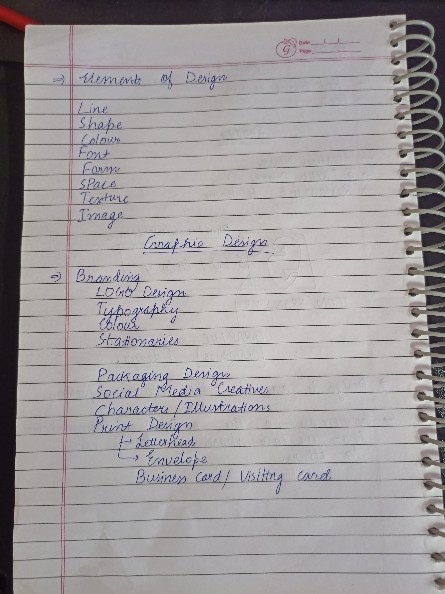 Date
Page
⇒ Elements of Design
Line
Shape
Colour
Font
Form
Space
Texture
Image
Graphic Design
⇒ Branding
LOGO Design
Typography
Colour
Stationaries
Packaging Design
Social Media Creatives
Characters/Illustrations
Print Design
→ Letterhead
→ Envelope
Business Card/ Visiting card